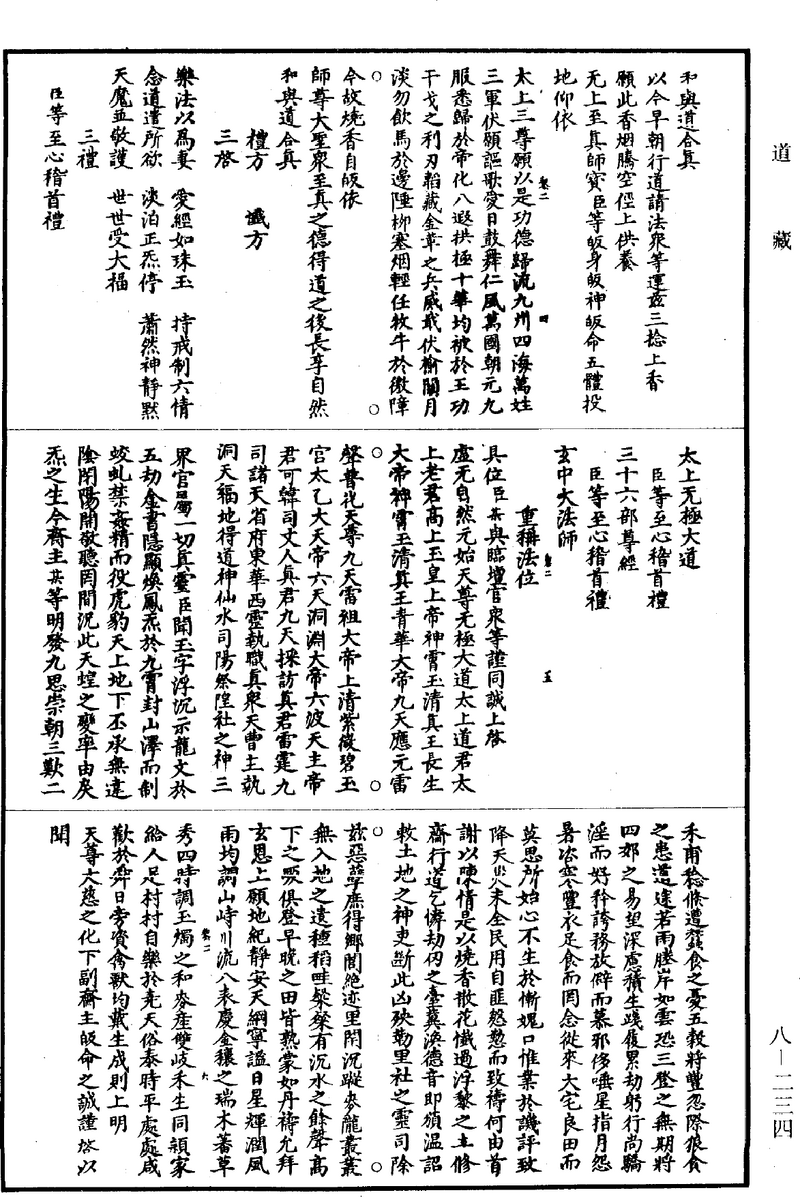 道藏
和與道合真
以今早朝行道請法衆等運茲三捻上香
願此香烟騰空徑上供養
无上至真師寳臣等皈身皈神皈命五體投
地仰依
太上三尊願以是功德歸流九州四海萬姓
三軍伏願謳歌愛日鼓舞仁風萬國朝元九
服悉歸於帝化八遐拱極十華均被於王功
干戈之利刃韜藏金革之兵威戢伏榆關月
淡勿飲馬於邊陲柳塞烟輕任牧牛於徼障
今故燒香自皈依
師尊大聖衆至真之德得道之後長享自然
和與道合真
禮方 懺方
三啓
樂法以爲妻 愛經如珠玉 持戒制六情
念道遣所欲 淡泊正炁停 蕭然神靜默
天魔並敬護 世世受大福
三禮
臣等至心稽首禮
太上无極大道
臣等至心稽首禮
三十六部尊經
臣等至心稽首禮
玄中大法師
重稱法位
具位臣某與臨壇官衆等謹同誠上啓
虛无自然元始天尊无極大道太上道君太
上老君高上玉皇上帝神霄玉清真王長生
大帝神霄玉清真王青華大帝九天應元雷
聲普化天尊九天雷祖大帝上清紫微碧玉
宫太乙大天帝六天洞淵大帝六波天主帝
君可韓司丈人真君九天採訪真君雷霆九
司諸天省府東華西靈執職真衆天曹主執
洞天福地得道神仙水司陽祭隍社之神三
界官屬一切真靈臣聞玉字浮沉示龍文於
五劫金書隱顯煥鳳炁於九霄封山澤而制
蛟虬禁姦精而役虎豹天上地下丕承無違
陰閉陽開敬聽罔間況此天蝗之變率由戾
炁之生今齋主某等明發九思崇朝三歎二
禾甫稔倏遭蠶食之憂五穀將豐忽際狼食
之患遺蝗若雨塍岸如雲恐三登之無期將
四郊之易望深慮積生踐履累劫躬行尚驕
淫而好矜誇務放僻而慕邪侈唾星指月怨
暑咨寒豐衣足食而罔念從來大宅良田而
莫思所始心不生於慚媿口惟業於譏評致
降天災未全民用自匪怒懃而致禱何由首
謝以陳情是以燒香散花懺過浮黎之土修
齋行道乞憐劫仞之臺冀渙德音即頒溫詔
敕土地之神吏斷此凶殃勒里社之靈司除
茲惡孽庶得鄉閭絶迹里閈沉蹤麥隴叢叢
無入地之遺種稻畦粲粲有沉水之餘聲高
下之眾俱登早晚之田皆熟蒙如丹禱允拜
玄恩上願地紀靜安天綱寧謐日星輝潤風
雨均調山峙川流八表慶金穰之瑞木蕃草
秀四時調玉燭之和麥産雙岐禾生同頴家
給人足村村自樂於堯天俗泰時平處處咸
歡於舜日旁資禽獸均戴生成則上明
天尊大慈之化下副齋主皈命之誠謹啓以
聞
八—二三四